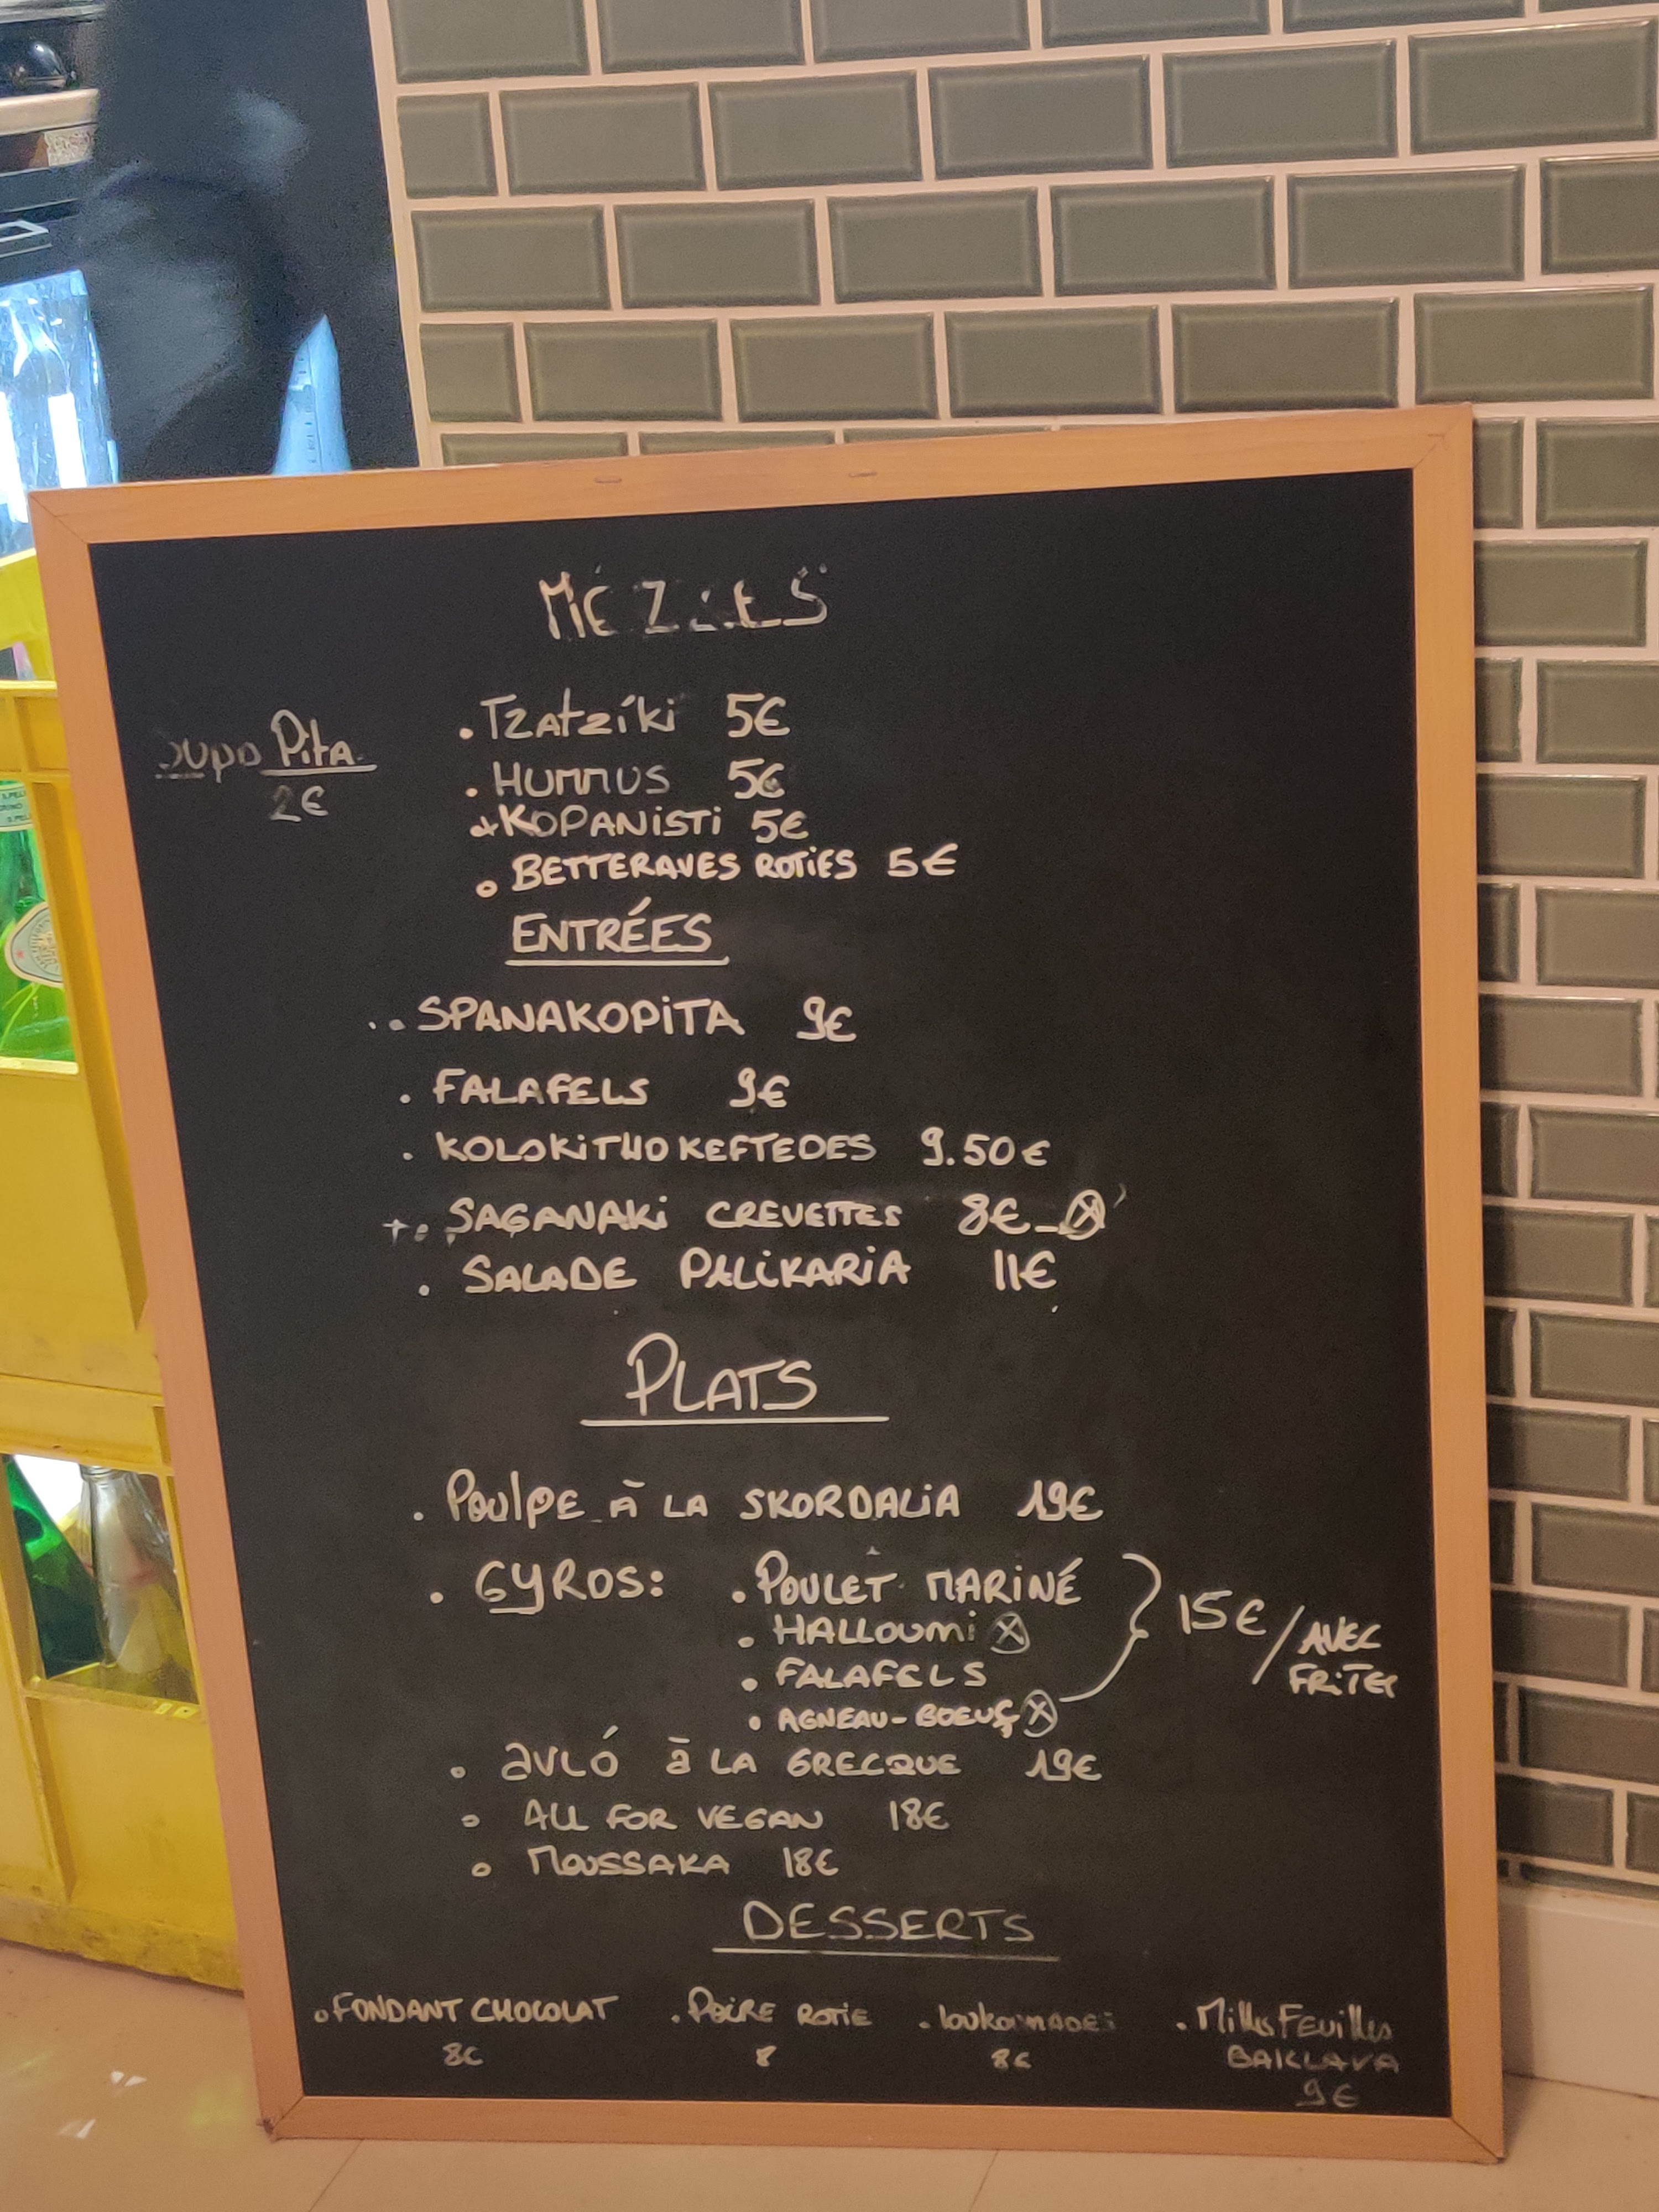 MEZZES
. Tzatziki 5€
Pita
2€
. HUMMUS 5€
KOPANISTI 5€
BETTERAVES ROTIES 5€
ENTRÉES
. SPANAKOPITA 9€
. FALAFELS 9€
. KOLOKITHOKEFTEDES 9.50€
+. SAGANAKI CREVETTES 8€ - ⓧ
. SALADE PALIKARIA 11€
PLATS
. Poulpe À LA SKORDALIA 19€
. GYROS: . POULET MARINÉ
. HALLOUMI ⓧ
15€ / AVEC
FRITES
. FALAFELS
. AGNEAU-BOEUF ⓧ
à LA GRECQUE 19€
ALL FOR VEGAN 18€
MOUSSAKA 18€
DESSERTS
. FONDANT CHOCOLAT . POIRE ROTIE . loukoumades . Milles Feuilles
BAKLAVA
8€ 8 8€
9€